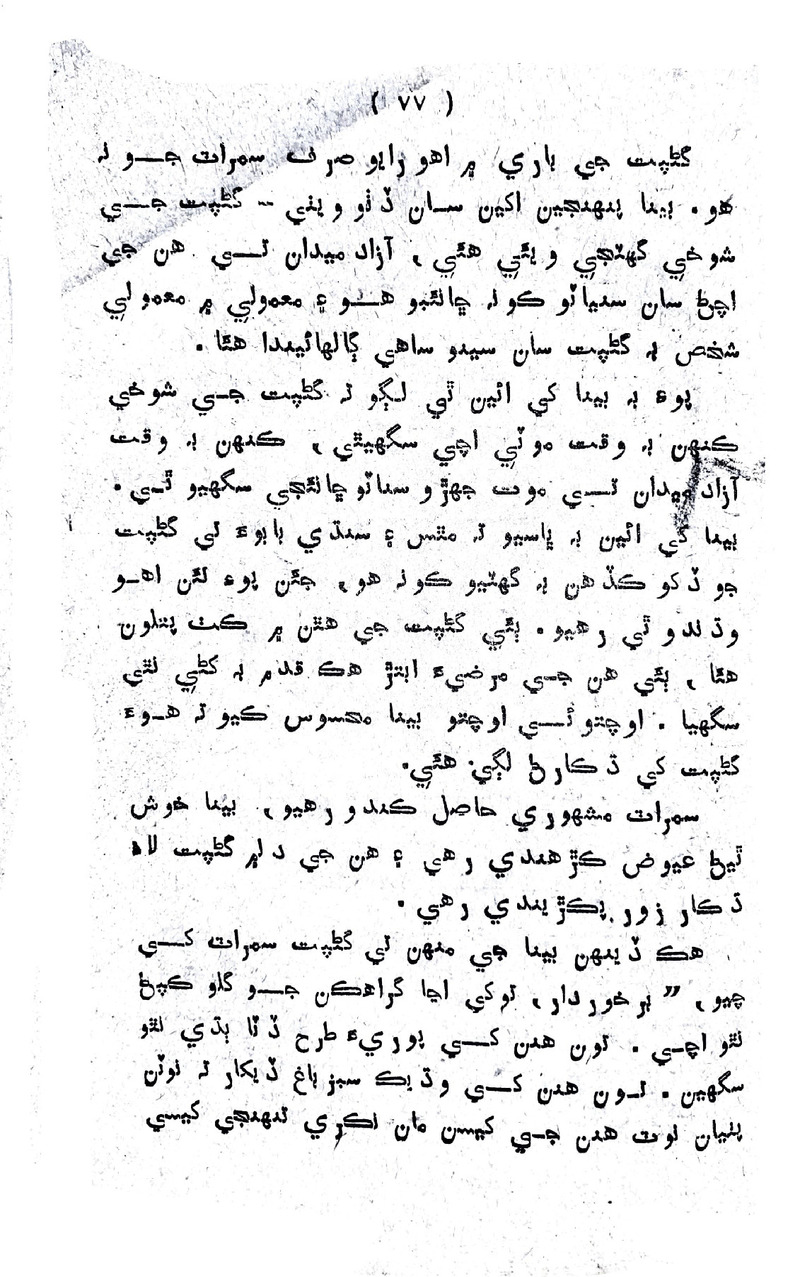 ( ۷۷ )
گڻپت جي باري ۾ اهو رايو صرف سمراٽ جــو نہ
هو. بينا پنهنجين اکين ســان ڏٺو ويٺي – گڻپت جــي
شوخي گهٽجي ويئي هئي، آزاد ميدان تــي هن جي
اچڻ سان سنياٽو ڪونہ ڇانئبو هــو ۽ معمولي ۾ معمولي
شخص بہ گڻپت سان سينو ساهي ڳالهائيندا هئا.
پوءِ بہ بينا کي ائين ٿي لڳو تہ گڻپت جــي شوخي
ڪنهن بہ وقت موٽي اچي سگهيٿي، ڪنهن بہ وقت
آزاد ميدان تــي موت جهڙو سناٽو ڇانئجي سگهيو ٿــي.
بينا کي ائين بہ ڀاسيو تہ مٿس ۽ سنڌي بابوءَ تي گڻپت
جو ڏکو ڪڏهن بہ گهٽيو ڪونہ هو، جئن پوءِ تئن اهــو
وڌندو ٿي رهيو. ٻئي گڻپت جي هٿن ۾ ڪٺ پتلون
هئا، ٻئي هن جــي مرضيءَ ابتڙ هڪ قدم بہ کڻي نٿي
سگهيا. اوچتو ئــي اوچتو بينا محسوس ڪيو تہ هــوءَ
گڻپت کي ڌڪارڻ لڳي هئي.
سمراٽ مشهوري حاصل ڪندو رهيو، بينا خوش
ٿيڻ عيوض ڪڙهندي رهي ۽ هن جي دل ۾ گڻپت لاءِ
ڌڪار زور پڪڙيندي رهي.
هڪ ڏينهن بينا جي منهن تي گڻپت سمراٽ کــي
چيو، ”برخوردار، توکي اڃا گراهڪن جــو گلو ڪپڻ
نٿو اچــي. تون هنن کــي پوريءَ طرح ڏٺا ٻڌي نٿو
سگهين. تــون هنن کــي وڌيڪ سبز باغ ڏيکار تہ نوٽن
پٺيان نوٽ هنن جــي کيسن مان نڪري تنهنجي کيسي